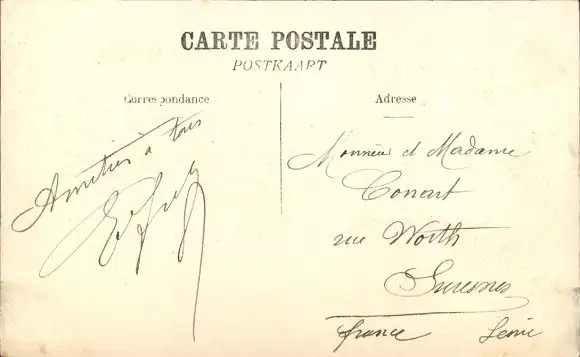 CARTE POSTALE
POSTKAART
Correspondance
Amitiés à tous
Adresse
Monsieur et Madame
Conart
rue Worth
Suresnes
france Seine